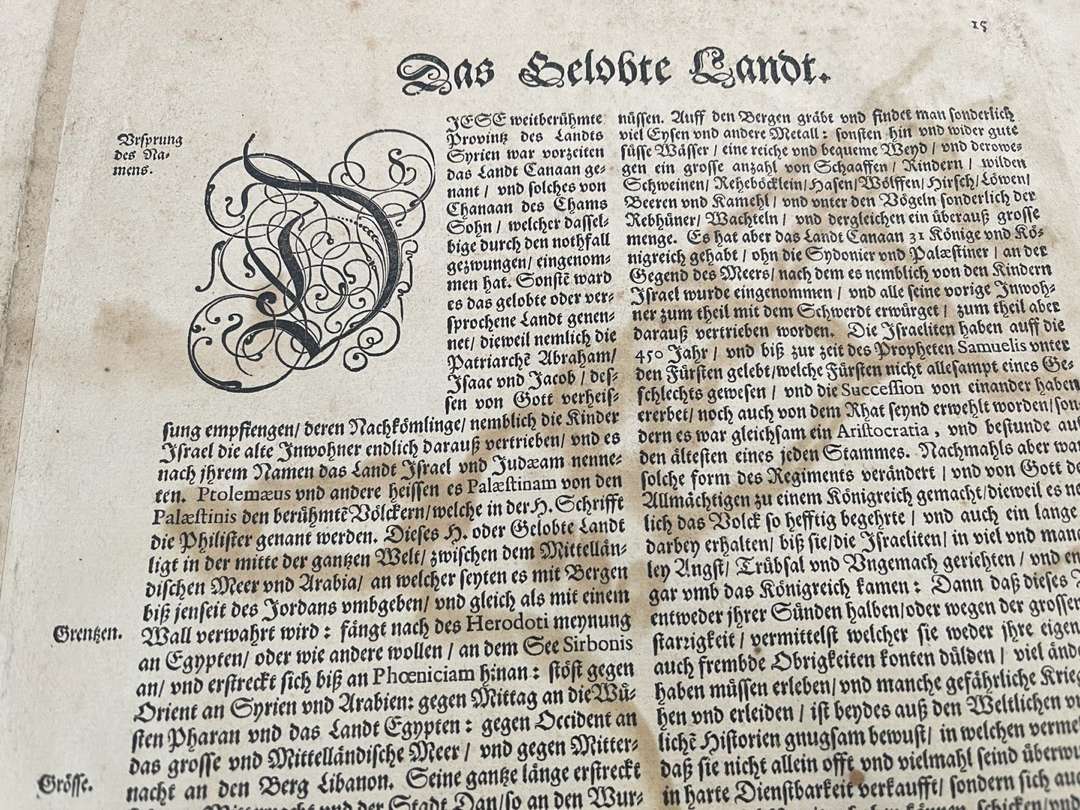 15
Das Gelobte Landt.
Vrsprung
des Na-
mens.
DJESE weitberühmte
Provintz des Landts
Syrien war vorzeiten
das Landt Canaan ge-
nant / vnd solches von
Chanaan des Chams
Sohn / welcher dassel-
bige durch den nothfall
gezwungen / eingenom-
men hat. Sonstẽ ward
es das gelobte oder ver-
sprochene Landt genen-
net / dieweil nemlich die
Patriarchẽ Abraham /
Isaac vnd Jacob / des-
sen von Gott verheis-
sung empfiengen / deren Nachkömlinge / nemblich die Kinder
Jsrael die alte Jnwohner endlich darauß vertrieben / vnd es
nach jhrem Namen das Landt Jsrael vnd Judæam nenne-
ten. Ptolemæus vnd andere heissen es Palæstinam von den
Palæstinis den berühmtẽ Völckern / welche in der H. Schrifft
die Philister genant werden. Dieses H. oder Gelobte Landt
ligt in der mitte der gantzen Welt / zwischen dem Mittellän-
dischen Meer vnd Arabia / an welcher seyten es mit Bergen
biß jenseit des Jordans vmbgeben / vnd gleich als mit einem
Grentzen.
Wall verwahrt wird : fängt nach des Herodoti meynung
an Egypten / oder wie andere wollen / an dem See Sirbonis
an / vnd erstreckt sich biß an Phœniciam hinan : stöst gegen
Orient an Syrien vnd Arabien: gegen Mittag an die Wü-
sten Pharan vnd das Landt Egypten : gegen Occident an
das grosse vnd Mittelländische Meer / vnd gegen Mitter-
Grösse.
nacht an den Berg Libanon. Seine gantze länge erstreckt
Mitternacht vnd der Stadt Dan / so an den Wur-
nüssen. Auff den Bergen gräbt vnd findet man sonderlich
viel Eysen vnd andere Metall : sonsten hin vnd wider gute
süsse Wässer / eine reiche vnd bequeme Weyd / vnd derowe-
gen ein grosse anzahl von Schaaffen / Rindern / wilden
Schweinen / Reheböcklein / Hasen / Wölffen / Hirsch / Löwen /
Beeren vnd Kamehl / vnd vnter den Vögeln sonderlich der
Rebhüner / Wachteln / vnd dergleichen ein überauß grosse
menge. Es hat aber das Landt Canaan 31 Könige vnd Kö-
nigreich gehabt / ohn die Sydonier vnd Palæstiner / an der
Gegend des Meers / nach dem es nemblich von den Kindern
Jsrael wurde eingenommen / vnd alle seine vorige Jnwoh-
ner zum theil mit dem Schwerdt erwürget / zum theil aber
darauß vertrieben worden. Die Jsraeliten haben auff die
450 Jahr / vnd biß zur zeit des Propheten Samuelis vnter
den Fürsten gelebt / welche Fürsten nicht allesampt eines Ge-
schlechts gewesen / vnd die Succession von einander haben
ererbet / noch auch von dem Rhat seynd erwehlt worden / son-
dern es war gleichsam ein Aristocratia , vnd bestunde auf
den ältesten eines jeden Stammes. Nachmahls aber war
solche form des Regiments verändert / vnd von Gott de
Allmächtigen zu einem Königreich gemacht / dieweil es ne
lich das Volck so hefftig begehrte / vnd auch ein lange
darbey erhalten / biß sie / die Jsraeliten / in viel vnd man
ley Angst / Trübsal vnd Vngemach gerichten / vnd en
gar vmb das Königreich kamen : Dann daß dieses
entweder jhrer Sünden halben / oder wegen der grossen
starzigkeit / vermittelst welcher sie weder jhre eigen
auch frembde Obrigkeiten konten dülden / viel ände
haben müssen erleben / vnd manche gefährliche Krieg
hen vnd erleiden / ist beydes auß den Weltlichen v
lichẽ Historien gnugsam bewust / in welchen verme
daß sie nicht allein offt vnd vielmahl seind überwu
in harte Dienstbarkeit verkaufft / sondern sich au